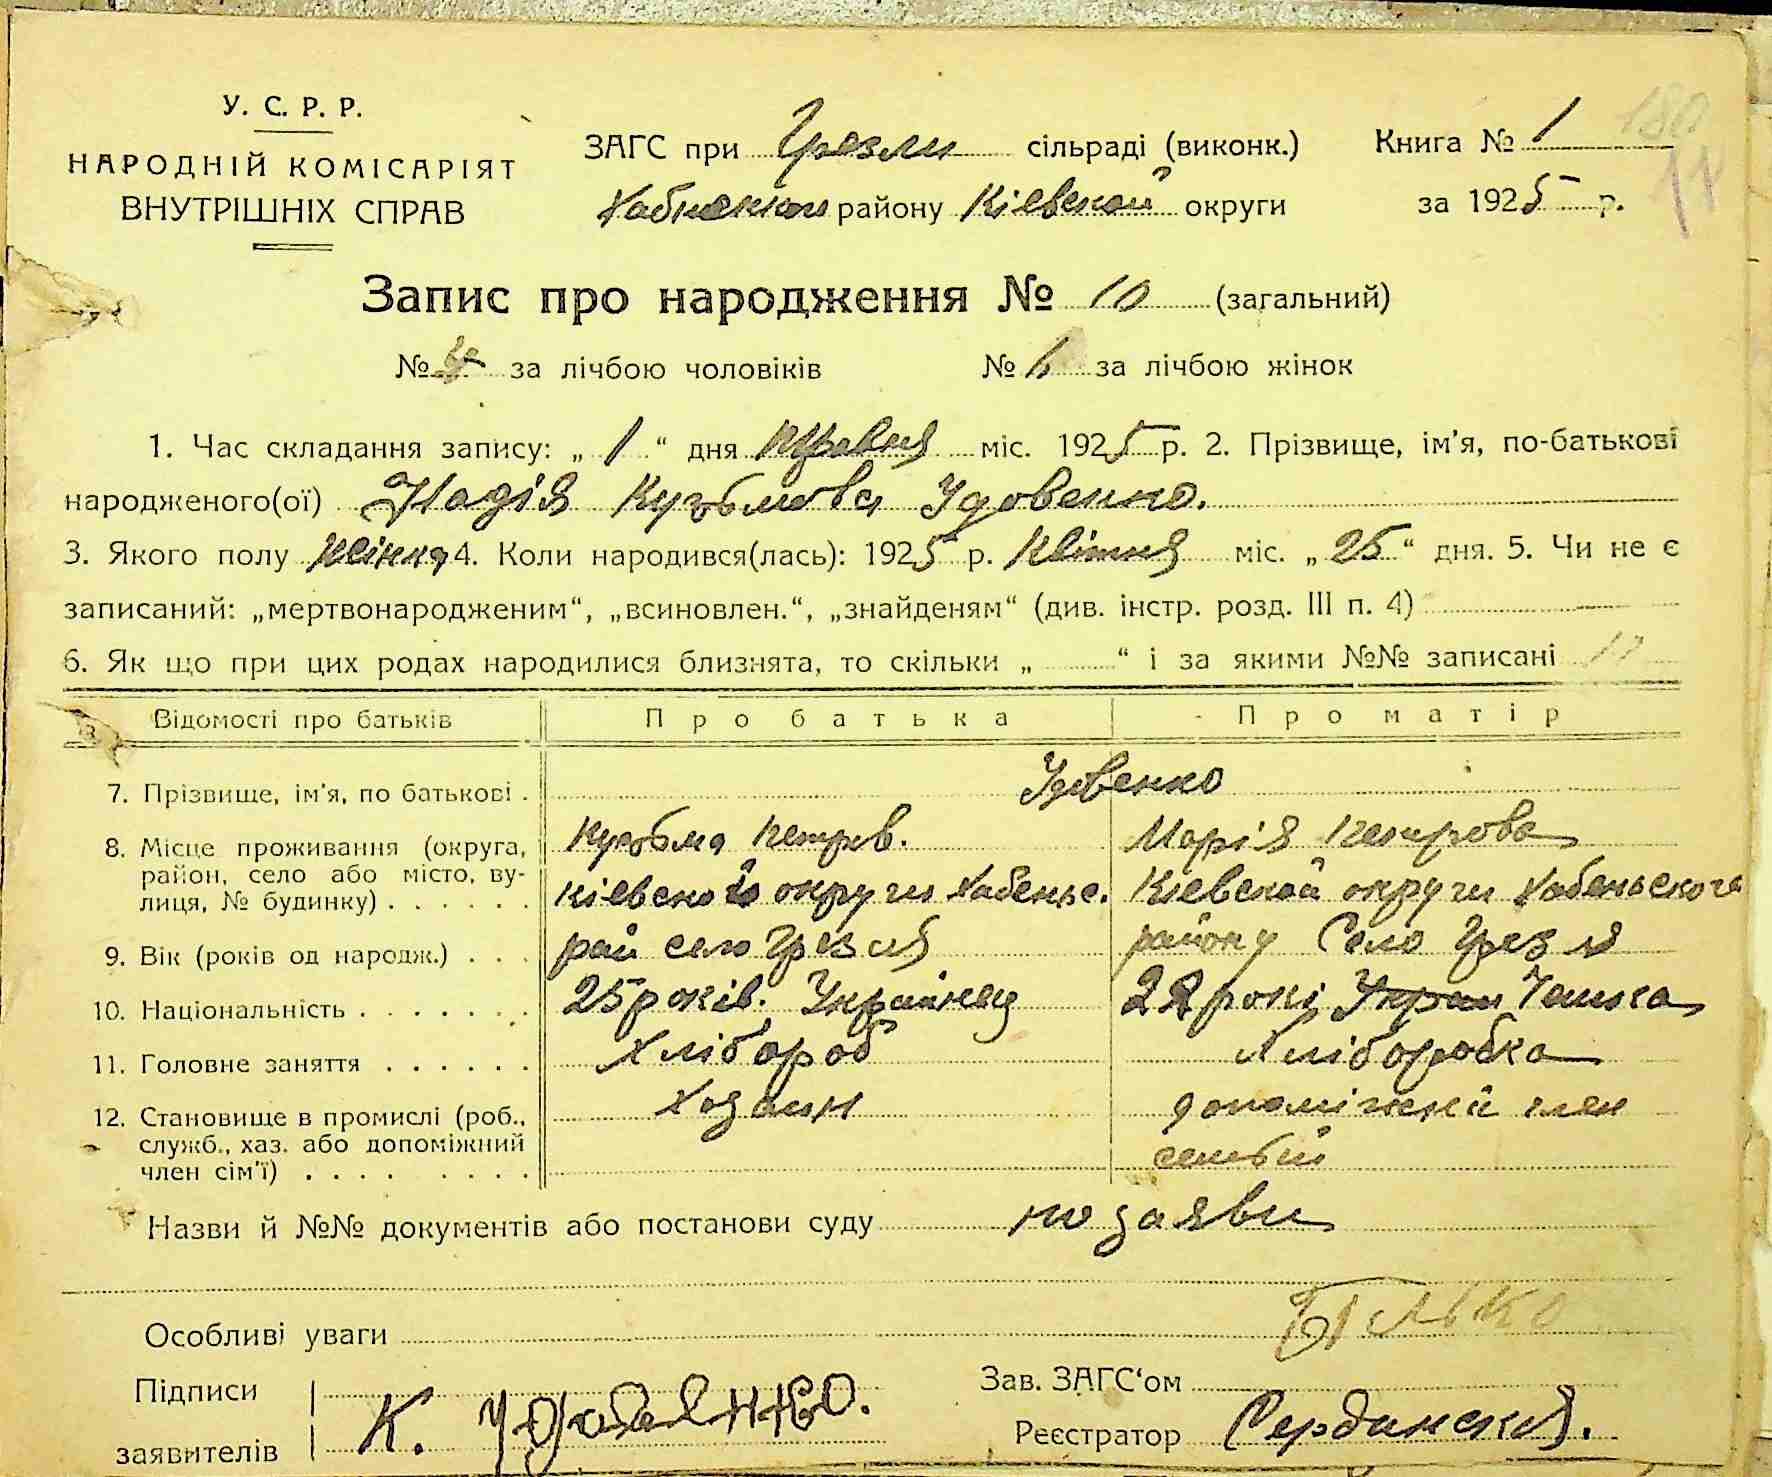 У. С. Р. Р.
НАРОДНІЙ КОМІСАРІЯТ
ВНУТРІШНІХ СПРАВ
ЗАГС при Грезли сільраді (виконк.) Книга № 1
району Кіевской округи за 1925 р.
Запис про народження № 10 (загальний)
№ 4 за лічбою чоловіків № 6 за лічбою жінок
1. Час складання запису: „ 1 “ дня травня міс. 1925 р. 2. Прізвище, ім’я, по-батькові
народженого(ої) Надія Кузьмова Удовенко.
3. Якого полу жінка 4. Коли народився(лась): 1925 р. Квітня міс. „ 25 “ дня. 5. Чи не є
записаний: „мертвонародженим“, „всиновлен.“, „знайденям“ (див. інстр. розд. III п. 4)
6. Як що при цих родах народилися близнята, то скільки „ “ і за якими №№ записані
Відомості про батьків Про батька Про матір
7. Прізвище, ім’я, по батькові . Удовенко
Кузьма Петров. Марія Петрова
8. Місце проживання (округа, район, село або місто, вулиця, № будинку) . . . . . .
Кіевской округи Хабеньс. Кіевской округи Хабеньского
рай село Грезля району Село Грезля
9. Вік (років од народж.) . . .
25 років. Українец 22 років Укра
10. Національність . . . . . . .
11. Головне заняття . . . . . . Хлібороб Хліборобка
12. Становище в промислі (роб., служб., хаз. або допоміжний член сім’ї) . . . . . . . .
Хозаин допоміжній член
семьіи
Назви й №№ документів або постанови суду по заяви
Особливі уваги Білько
Підписи
заявителів К. Удовенко.
Зав. ЗАГС‘ом
Реєстратор